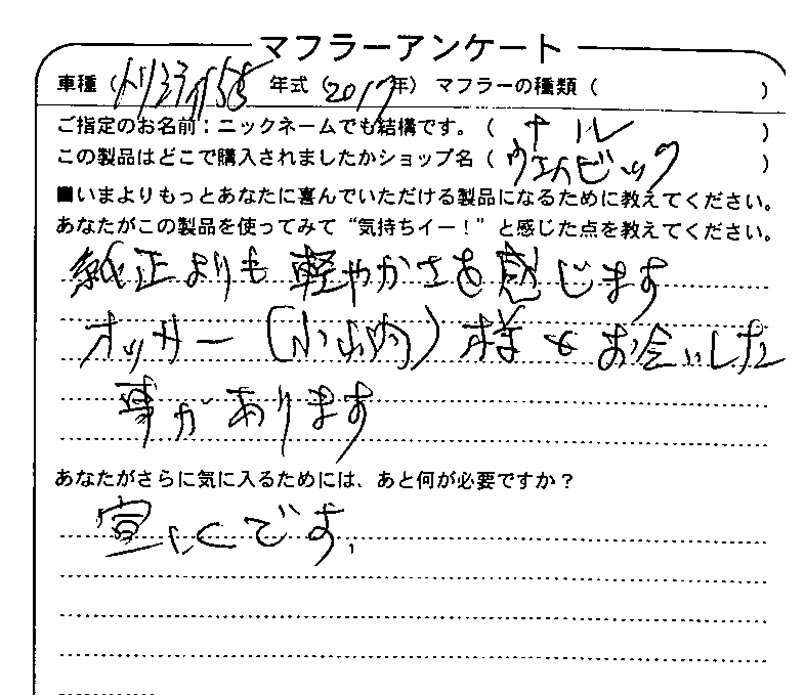 マフラーアンケート
車種（トリシティ155 年式（2017年）マフラーの種類（　　）
ご指定のお名前：ニックネームでも結構です。（ ナル ）
この製品はどこで購入されましたかショップ名（ ウェビック ）
■いまよりもっとあなたに喜んでいただける製品になるために教えてください。
あなたがこの製品を使ってみて“気持ちイー！”と感じた点を教えてください。
純正よりも軽やかさを感じます
オッサー（小山内）様とお会いした
事があります
あなたがさらに気に入るためには、あと何が必要ですか？
宜しくです、